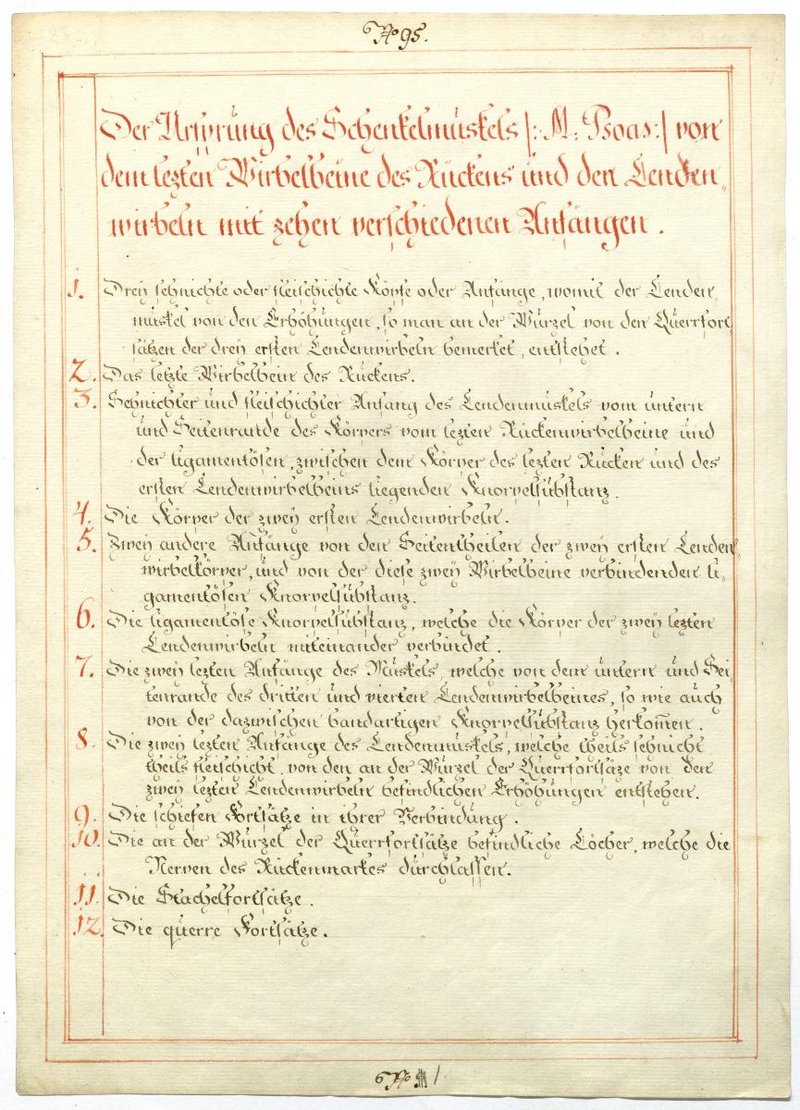 No 95.
Der Ursprung des Schenkelmuskels |: M. Psoas :| von
dem lezten Wirbelbeine des Rückens und den Lenden„
wirbeln mit zehen verschiedenen Anfängen.
1. Drey sehnichte oder fleischichte Köpfe oder Anfänge, womit der Lenden„
muskel von den Erhöhungen, so man an der Wurzel von den Querrfort„
säzen der drey ersten Lendenwirbeln bemerket, entstehet.
2. Das letzte Wirbelbein des Rückens.
3. Sehnichter und fleischichter Anfang des Lendenmuskels vom untern
und Seitenrande des Körpers vom lezten Rückenwirbelbeine und
der ligamentösen, zwischen dem Körper des lezten Rücken und des
ersten Lendenwirbelbeins liegenden Knorpelsubstanz.
4. Die Körper der zwey ersten Lendenwirbeln.
5. Zwey andere Anfänge von den Seitentheilen der zwey ersten Lenden„
wirbelkörper, und von der diese zwey Wirbelbeine verbindenden li„
gamentösen Knorpelsubstanz.
6. Die ligamentöse Knorpelsubstanz, welche die Körper der zwey lezten
Lendenwirbeln miteinander verbindet.
7. Die zwey lezten Anfänge des Muskels, welche von dem untern und Sei„
tenrande des dritten und vierten Lendenwirbelbeines, so wie auch
von der dazwischen bandartigen Knorpelsubstanz herkom̄en.
8. Die zwey lezten Anfänge des Lendenmuskels, welche theils sehnicht
theils fleischicht, von den an der Wurzel der Querrfortsäze von den
zwey lezten Lendenwirbeln befindlichen Erhöhungen entstehen.
9. Die schiefen Fortsätze in ihrer Verbindung.
10. Die an der Wurzel der Querrfortsätze befindliche Löcher, welche die
Nerven des Rückenmarkes durchlassen.
11. Die Stachelfortsätze.
12. Die querre Fortsätze.
No